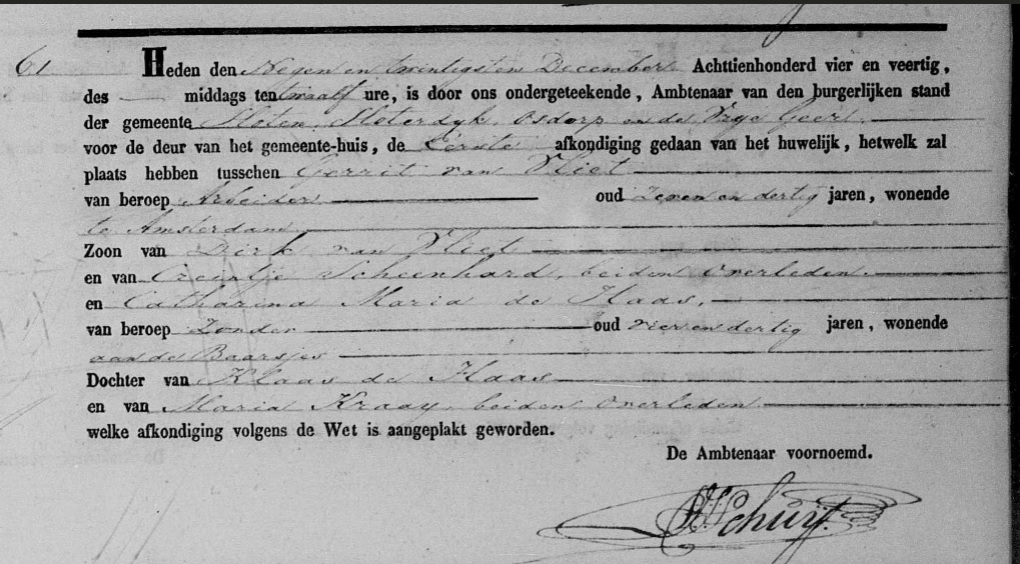 61 Heden den Negen en twintigsten December Achttienhonderd vier en veertig,
des middags ten twaalf ure, is door ons ondergeteekende, Ambtenaar van den burgerlijken stand
der gemeente Sloten, Sloterdyk, Osdorp en de Vrye Geer
voor de deur van het gemeente-huis, de Eerste afkondiging gedaan van het huwelijk, hetwelk zal
plaats hebben tusschen Gerrit van Vliet
van beroep Arbeider oud Zeven en dertig jaren, wonende
te Amsterdam
Zoon van Dirk van Vliet
en van Scheenhard, beiden overleden
en Catharina Maria de Haas,
van beroep Zonder oud vier en dertig jaren, wonende
aan de Baarsjes
Dochter van Klaas de Haas
en van Maria Kraay, beiden overleden
welke afkondiging volgens de Wet is aangeplakt geworden.
De Ambtenaar voornoemd.